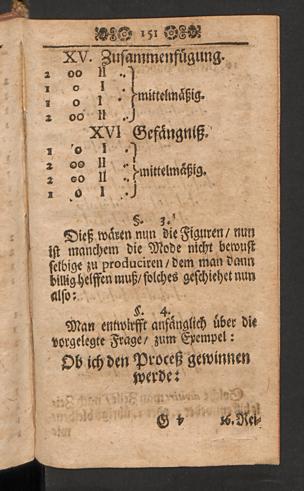 151
XV. Zusammenfügung.
2 oo II ..
1 o I . mittelmäßig.
1 o I .
2 oo II ..
XVI Gefängniß.
1 o I .
2 oo II .. mittelmäßig.
2 oo II ..
1 o I .
§. 3.
Dieß wären nun die Figuren/ nun
ist manchem die Mode nicht bewust
selbige zu produciren/ dem man dann
billig helffen muß/ solches geschiehet nun
also:
§. 4.
Man entwirfft anfänglich über die
vorgelegte Frage/ zum Exempel:
Ob ich den Proceß gewinnen
werde:
G 4 16. Rei-